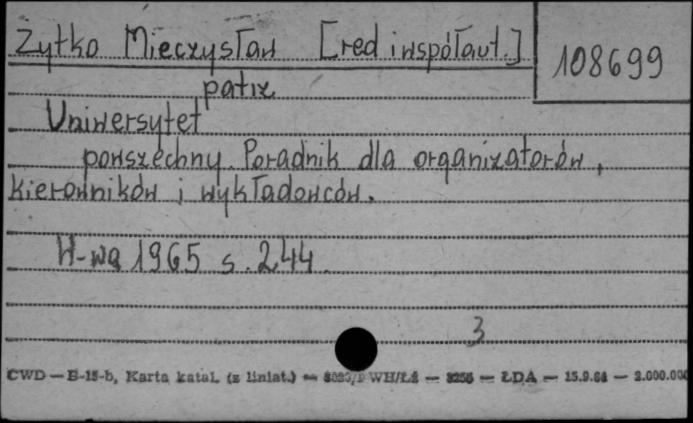 Zytko Mieczysław [red i współaut.]
108699
patrz
Uniwersytet
powszechny. Poradnik dla organizatorów,
kierowników i wykładowców.
W-wa 1965 s. 244.
3
CWD — B-15-b, Karta katal. (z liniat.) — WH/Łż — — ŁDA — 15.9.64 — 2.000.000